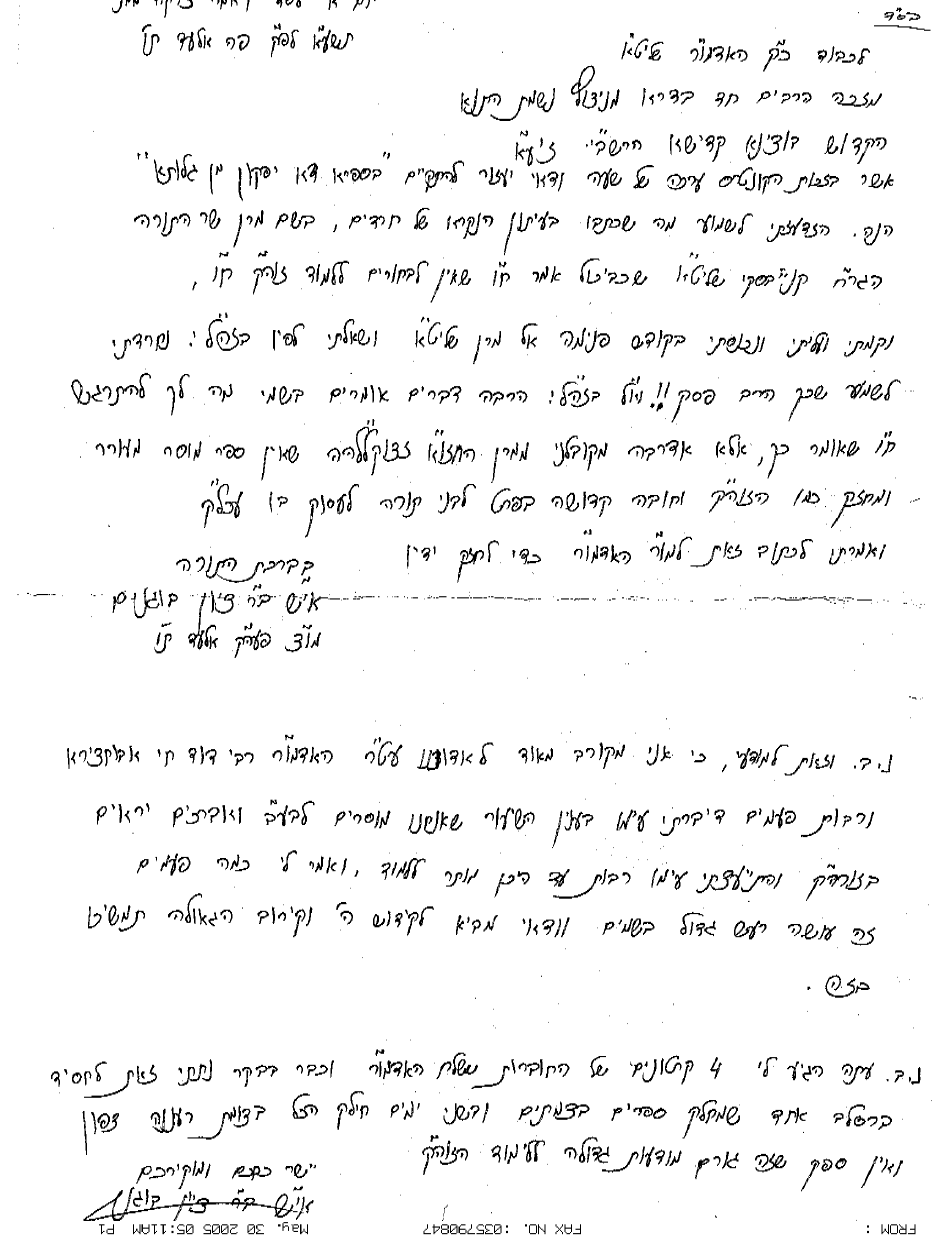 בס"ד
תשע"א לפ"ק פה אלעד ת"ו
לכבוד כ"ק האדמו"ר שליט"א
מזכה הרבים חד בדרא מניצוץ נשמת התנא
הקדוש בוצינא קדישא הרשב"י זיע"א
אשר בזכות הקונטרס ערכה של שעה ודאי יעזור להתקיים "בספרא דא יפקון מן גלותא"
הנה. הזדעזעתי לשמוע מה שכתבו בעיתון הנקרא של חרדים, בשם מרן שר התורה
הגר"ח קנייבסקי שליט"א שכביכול אמר ח"ו שאין לבחורים ללמוד זוה"ק ח"ו,
וקמתי ועליתי ונכנסתי בקודש פנימה אל מרן שליט"א ושאלתי לפיו בזה"ל: נחרדתי
לשמוע שכך הרב פסק!! וז"ל בזה"ל: הרבה דברים אומרים בשמי מה לך להתרגש
ח"ו שאומר כך, אלא אדרבה מקובלני ממרן החזו"א זצוקללה"ה שאין ספר מוסר מעורר
ומחזק כמו הזוה"ק וחובה קדושה בפרט לבני תורה לעסוק בו עכלה"ק
ואמרתי לכתוב זאת למו"ר האדמו"ר כדי לחזק ידיו
בברכת התורה
א"ש ב"ר ציון בוגנים
מו"צ פעה"ק אלעד ת"ו
נ.ב. וזאת למודעי, כי אני מקורב מאוד לאדוננו עט"ר האדמו"ר רבי דוד חי אבוחצירא
ורבות פעמים דיברתי עימו בענין השיעור שאנחנו מוסרים לבע"ב ואברכים יראים
בזוה"ק והתיעצתי עימו רבות עד היכן מותר ללמוד, ואמר לי כמה פעמים
זה עושה רעש גדול בשמים וודאי מביא לקידוש ה' וקירוב הגאולה תמשיכו
בזה.
נ.ב. עתה הגיע לי 4 קרטונים של החוברות ששלח האדמו"ר וכבר בבקר נתתי זאת לחסיד
ברסלב אחד שמחלק ספרים בצמתים ובשני ימים חילק הכל בצומת רעננה צפון
ואין ספק שזה גורם מודעות גדולה ללימוד הזוה"ק
יישר כחכם ומוקירכם
FROM : FAX NO. :035790847 May. 30 2005 05:11AM P1